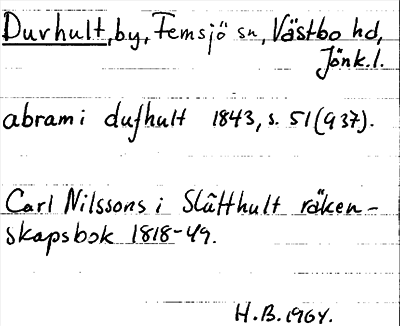 Durhult, by, Femsjö sn, Västbo hd,
Jönk.l.
abram i dufhult 1843, s. 51 (937).
Carl Nilssons i Slätthult räken-
skapsbok 1818-49.
H.B. 1964.